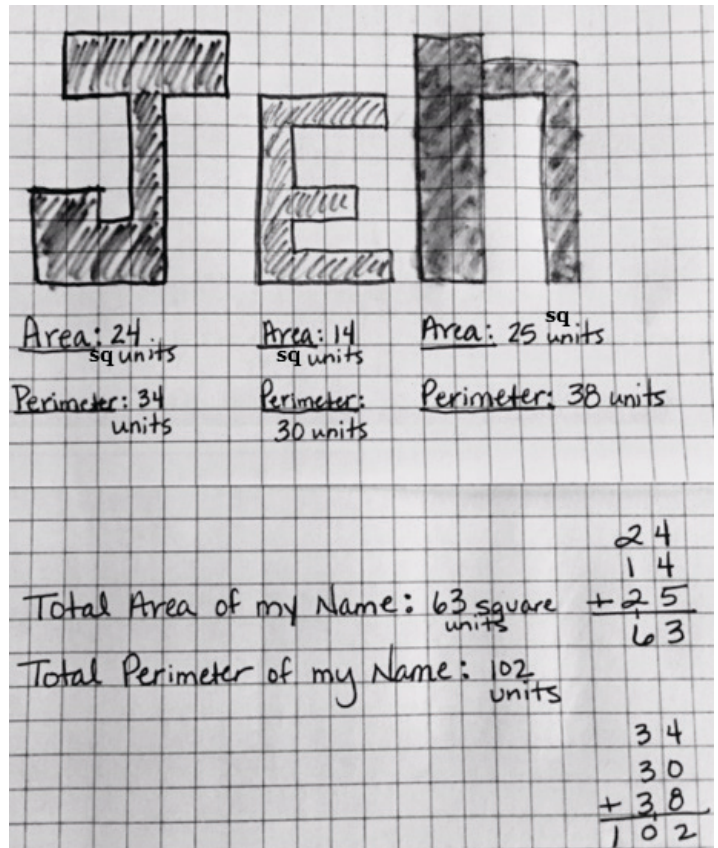 Jen
Area: 24
sq units
Perimeter: 34
units
Area: 14
sq units
Perimeter:
30 units
Area: 25 sq units
Perimeter: 38 units
24
14
+25
63
Total Area of my Name: 63 square
units
Total Perimeter of my Name: 102
units
34
30
+38
102